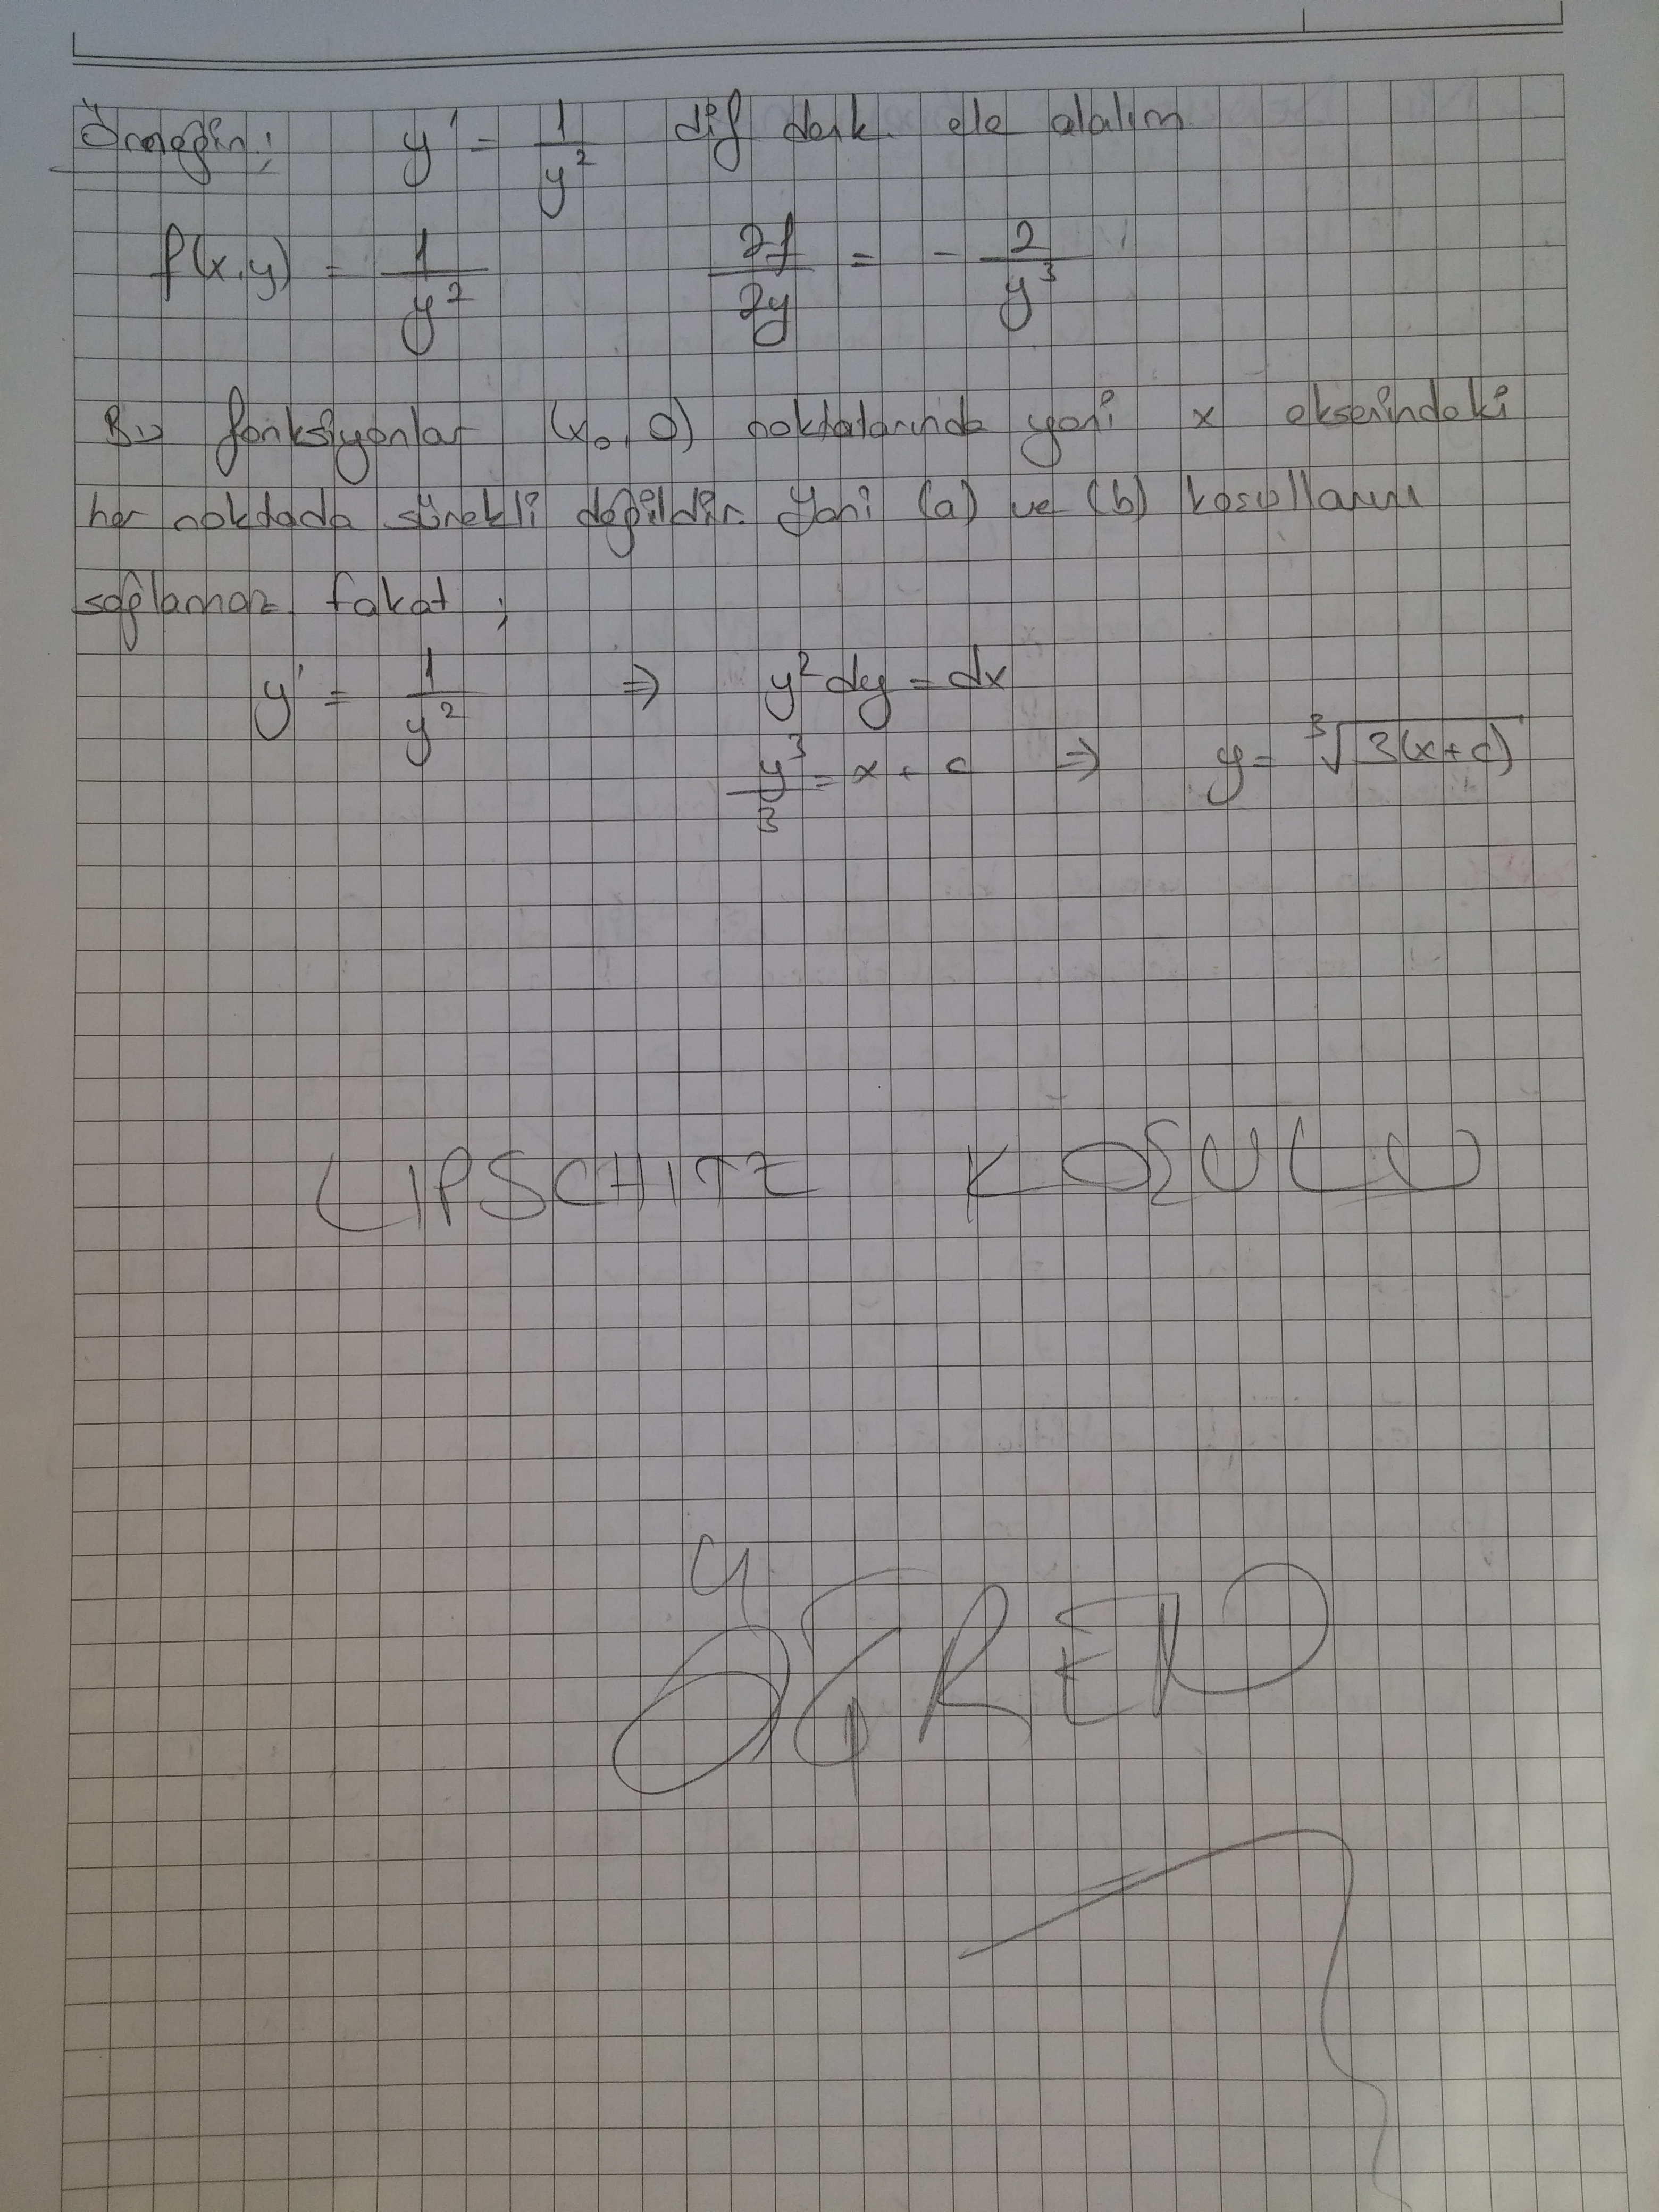 Örneğin; y' = 1/y² dif denk. ele alalım
f(x,y) = 1/y² ∂f/∂y = - 2/y³
Bu fonksiyonlar (x₀,0) noktalarında yani x eksenindeki
her noktada sürekli değildir. Yani (a) ve (b) koşullarını
sağlamaz. Fakat;
y' = 1/y² ⇒ y²dy = dx
y³/3 = x + c ⇒ y = ∛3(x+c)
LIPSCHITZ KOŞULU